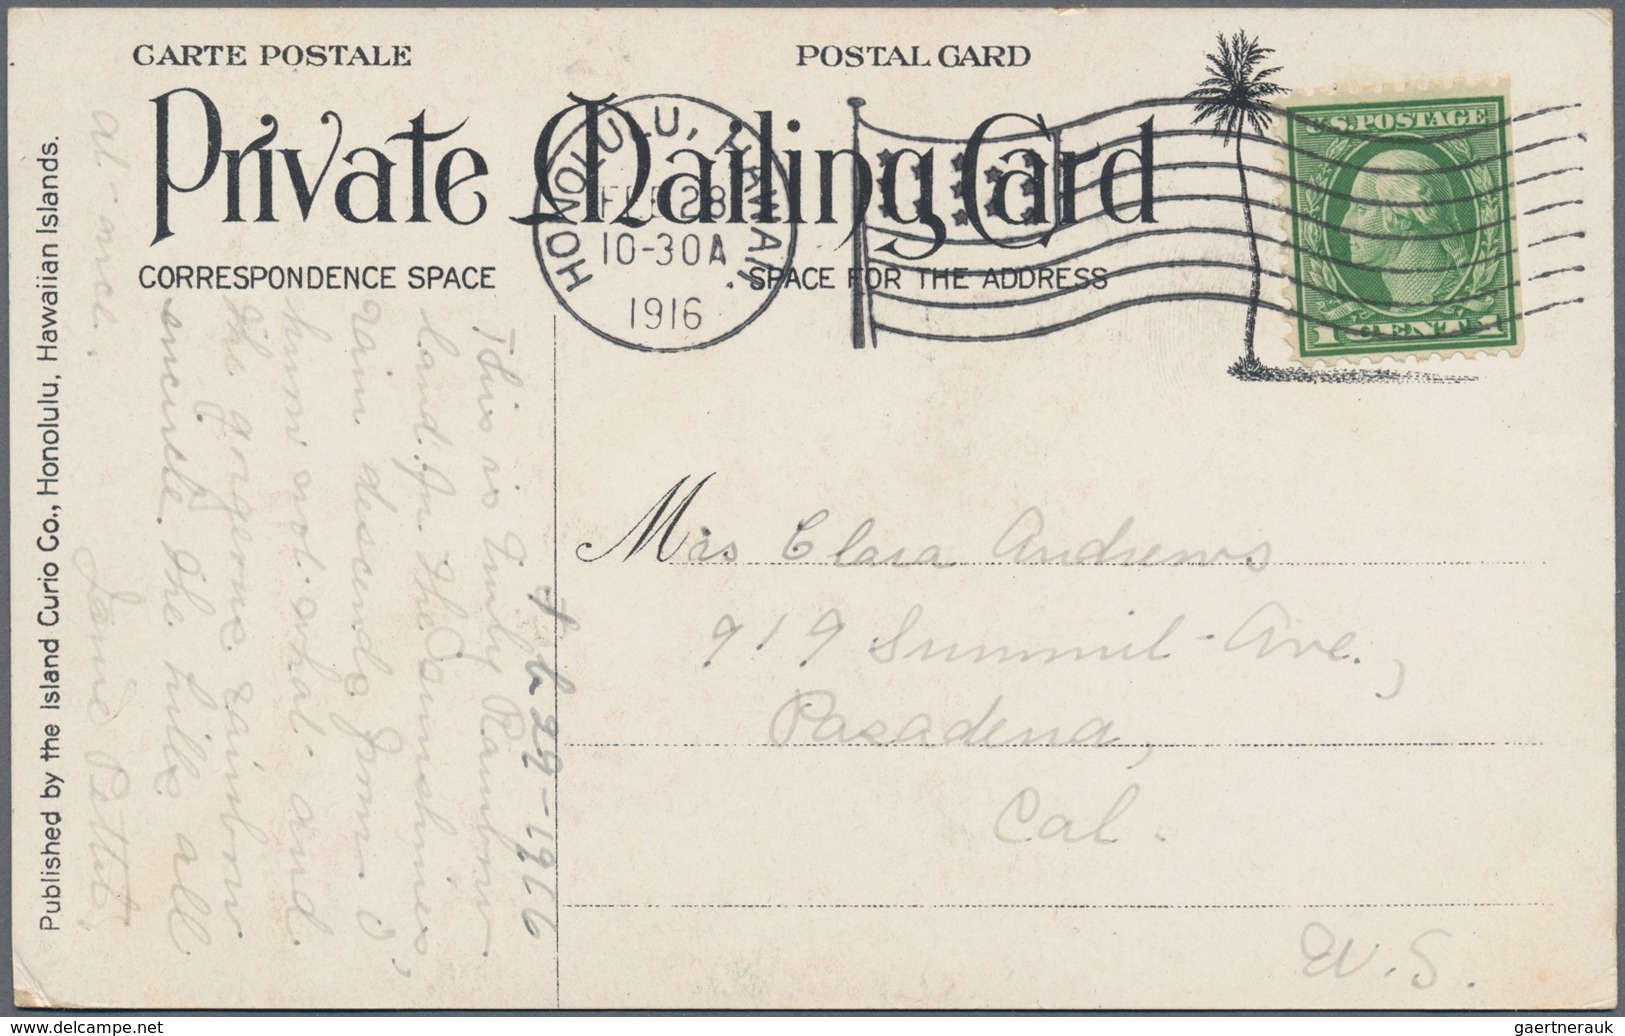 CARTE POSTALE
POSTAL CARD
Private Mailing Card
CORRESPONDENCE SPACE
SPACE FOR THE ADDRESS
HONOLULU, HAWAII.
FEB 28
10-30A
1916
U.S. POSTAGE
1 CENT 1
Feb 29-1916
This is truly Rainbow
land. In the Sunshines,
rain descends from I
know not what and
the gorgeous rainbow
encircle the hills all
at once.
Jennie Pettit,
Mrs Clara Andrews
919 Summit Ave.,
Pasadena,
Cal.
U.S.
Published by the Island Curio Co., Honolulu, Hawaiian Islands.
www.delcampe.net
gaertnerauk